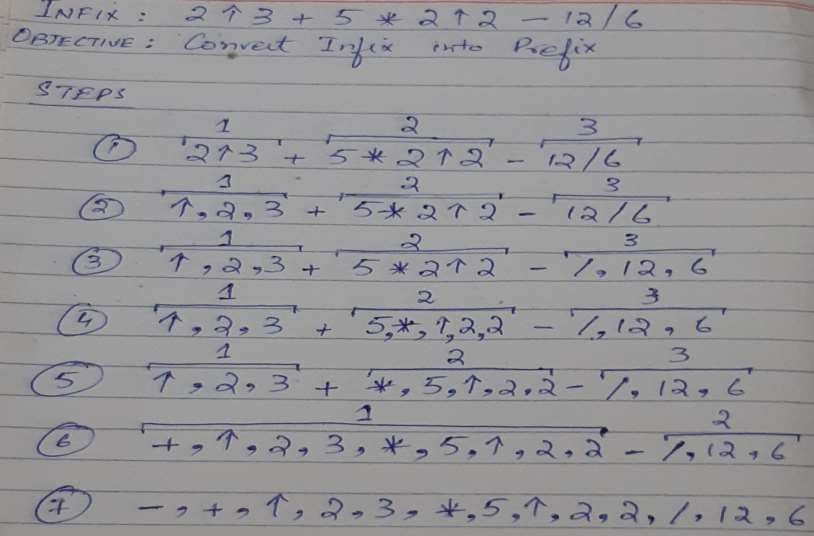 INFIX: 2↑3 + 5 * 2↑2 - 12/6
OBJECTIVE: Convert Infix into Prefix
STEPS
1 2 3
① 2↑3 + 5*2↑2 - 12/6
1 2 3
② ↑,2,3 + 5*2↑2 - 12/6
1 2 3
③ ↑,2,3 + 5*2↑2 - /,12,6
1 2 3
④ ↑,2,3 + 5,*,↑,2,2 - /,12,6
1 2 3
⑤ ↑,2,3 + *,5,↑,2,2 - /,12,6
1 2
⑥ +,↑,2,3,*,5,↑,2,2 - /,12,6
⑦ -,+,↑,2,3,*,5,↑,2,2,/,12,6